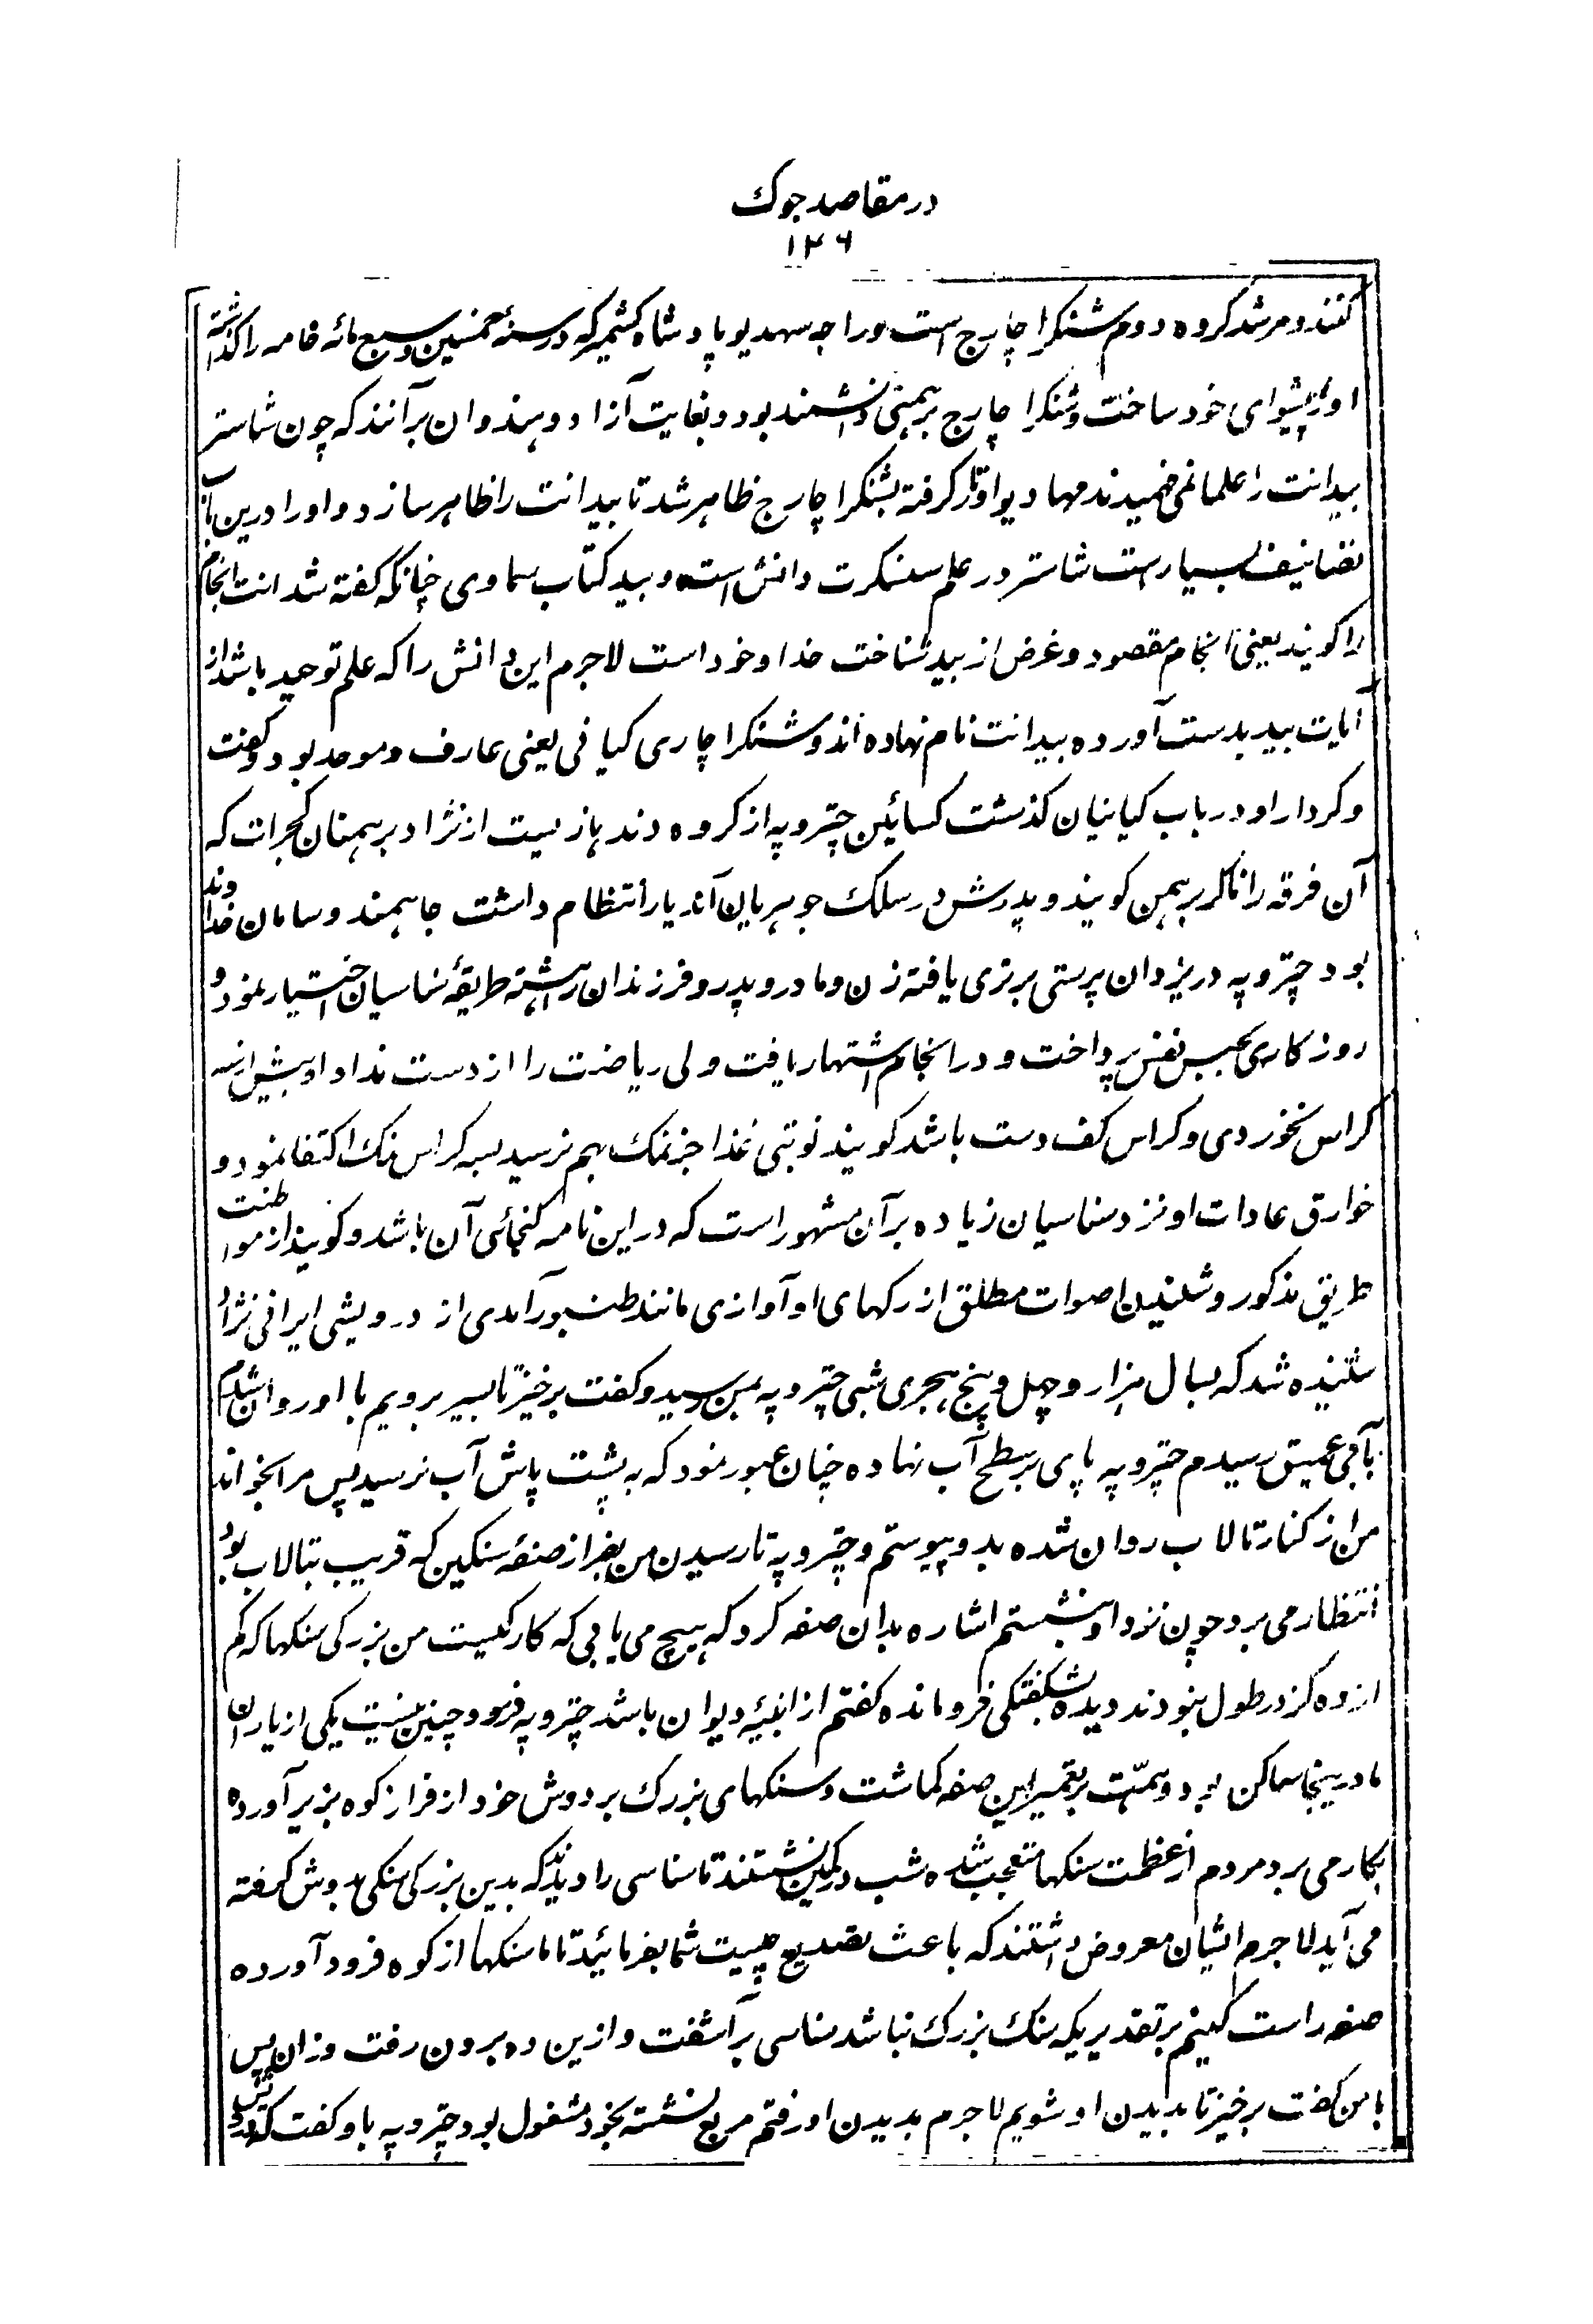 در مقاصد جوک
۱۲۶
کنند و مرشد کروه دوم شنکرا چارج است و راجه سهدیو پادشاه کشمیر که در سنهٔ خمسین و سبع مائه قامه را کذاشته
او را پیشوای خود ساخت و شنکرا چارج برهمنی دانشمند بود و بغایت آزاد و هندوان برآنند که چون شاستر
بیدانت را علما نمی فهمیدند مهادیو اوتار کرفته بشنکرا چارج ظاهر شد تا بیدانت را ظاهر سازد و او را درین باب
تصانیف بسیار است شاستر در علم سنسکرت دانش است و بید کتاب سماوی چنانکه کفته شد انت انجام
را کویند یعنی انجام مقصود و غرض از بید شناخت خدا و خود است لاجرم این دانش را که علم توحید باشد از
آیات بید بدست آورده بیدانت نام نهاده اند و شنکرا چاری کیانی یعنی عارف و موحد بود و کفت
و کردار او در باب کیانیان کذشت کسائین چتروپه از کروه دندهاریست از نژاد برهمنان کجرات که
آن فرقه را ناکر برهمن کویند و پدرش در سلک جوهریان آندیار انتظام داشت جاهمند و سامان خداوند
بود چتروپه در یزدان پرستی برتری یافته زن و مادر و پدر و فرزندان هشته طریقهٔ سناسیان اختیار نمود و
روزکاری بحبس نفس پرداخت و در انجام اشتهار یافت ولی ریاضت را از دست نداد او بیش از سه
کراس نخوردی و کراس کف دست باشد کویند نوبتی غذا جز نمک بهم نرسید بسه کراس نمک اکتفا نمود و
خوارق عادات او نزد سناسیان زیاده بر آن مشهور است که در این نامه کنجائی آن باشد و کویند از مواظبت
طریق مذکور و شنیدن اصوات مطلق از رکهای او آوازی مانند طنبور آمدی از درویشی ایرانی نژاد
شنیده شد که بسال هزار و چهل و پنج هجری شبی چتروپه بمن رسید و کفت برخیز تا بسیر برویم با او روان شدم
بآبی عمیق رسیدم چتروپه پای بر سطح آب نهاده چنان عبور نمود که به پشت پاش آب نرسید پس مرا بخواند
من از کنار تالاب روان شده بدو پیوستم و چتروپه تا رسیدن من بفراز صفهٔ سنکین که قریب بتالاب بود
انتظار می برد چون نزد او بنشستم اشاره بدان صفه کرد که هیچ می یابی که کار کیست من بزرکی سنکها که کم
از ده کز در طول نبودند دیده بشکفتکی فرومانده کفتم از ابنیهٔ دیوان باشد چتروپه فرمود چنین نیست یکی از یاران
ما درینجا ساکن بود و همّت بر تعمیر این صفه کماشت و سنکهای بزرک بر دوش خود از فراز کوه بزیر آورده
بکار می برد مردم از عظمت سنکها متعجب شده شب در کمین نشستند تا سناسی را دیدند که بدین بزرکی سنکی بدوش کرفته
می آید لاجرم ایشان معروض داشتند که باعث تصدیع چیست شما بفرمائید تا ما سنکها از کوه فرود آورده
صفه راست کنیم بر تقدیریکه سنک بزرک نباشد سناسی برآشفت و ازین ده برون رفت وزان پس
با من کفت برخیز تا بدیدن او شویم لاجرم بدیدن او رفتم مربع نشسته بخود مشغول بود چتروپه باو کفت که